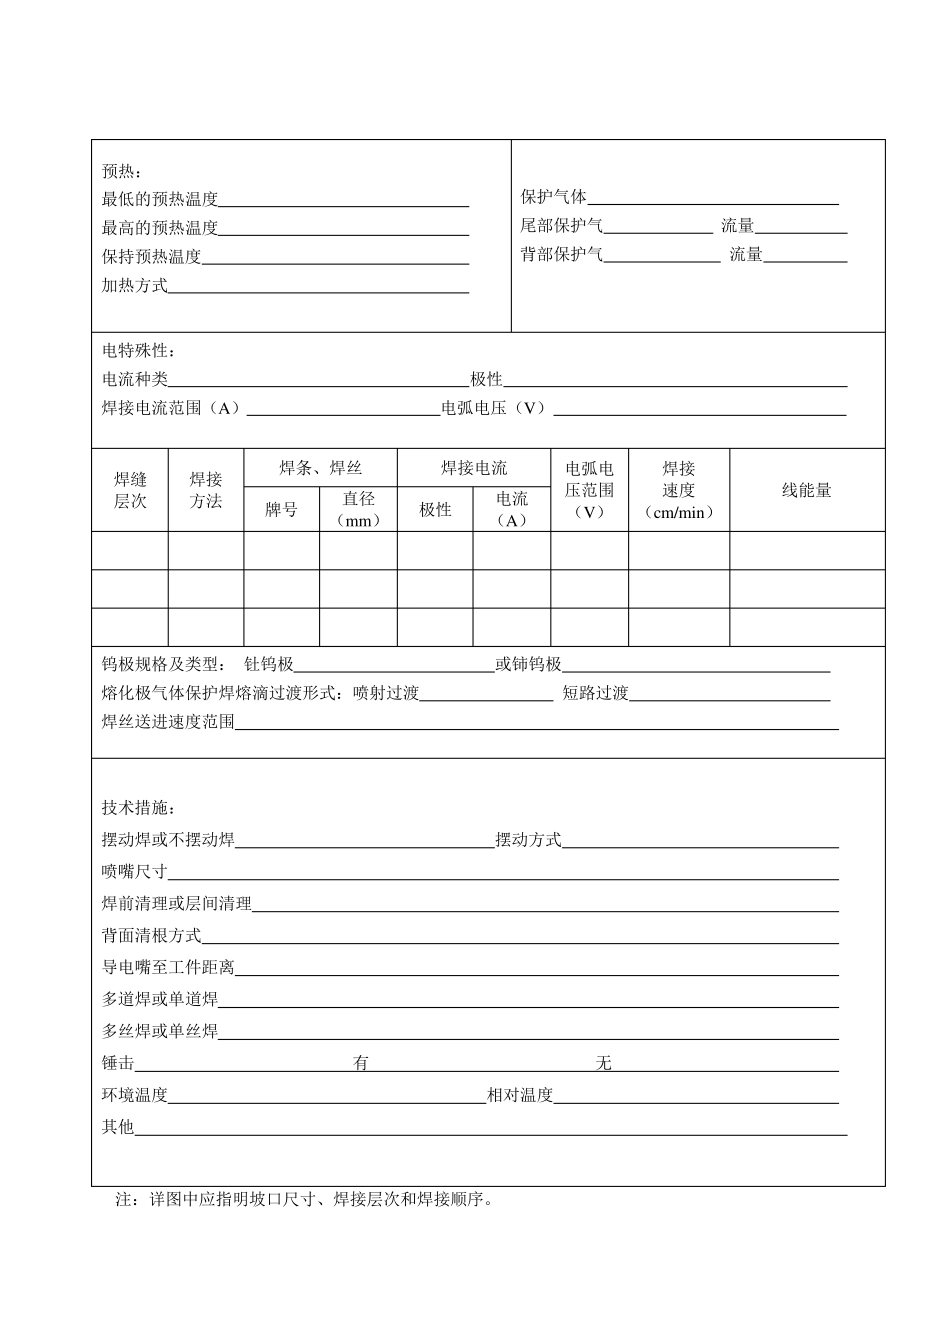 预热：
最低的预热温度
最高的预热温度
保持预热温度
加热方式
保护气体
尾部保护气 流量
背部保护气 流量
电特殊性：
电流种类 极性
焊接电流范围（A） 电弧电压（V）
焊缝
层次
焊接
方法
焊条、焊丝
牌号
直径
（mm）
焊接电流
极性
电流
（A）
电弧电
压范围
（V）
焊接
速度
（cm/min）
线能量
钨极规格及类型： 钍钨极 或铈钨极
熔化极气体保护焊熔滴过渡形式：喷射过渡 短路过渡
焊丝送进速度范围
技术措施：
摆动焊或不摆动焊 摆动方式
喷嘴尺寸
焊前清理或层间清理
背面清根方式
导电嘴至工件距离
多道焊或单道焊
多丝焊或单丝焊
锤击 有 无
环境温度 相对温度
其他
注：详图中应指明坡口尺寸、焊接层次和焊接顺序。